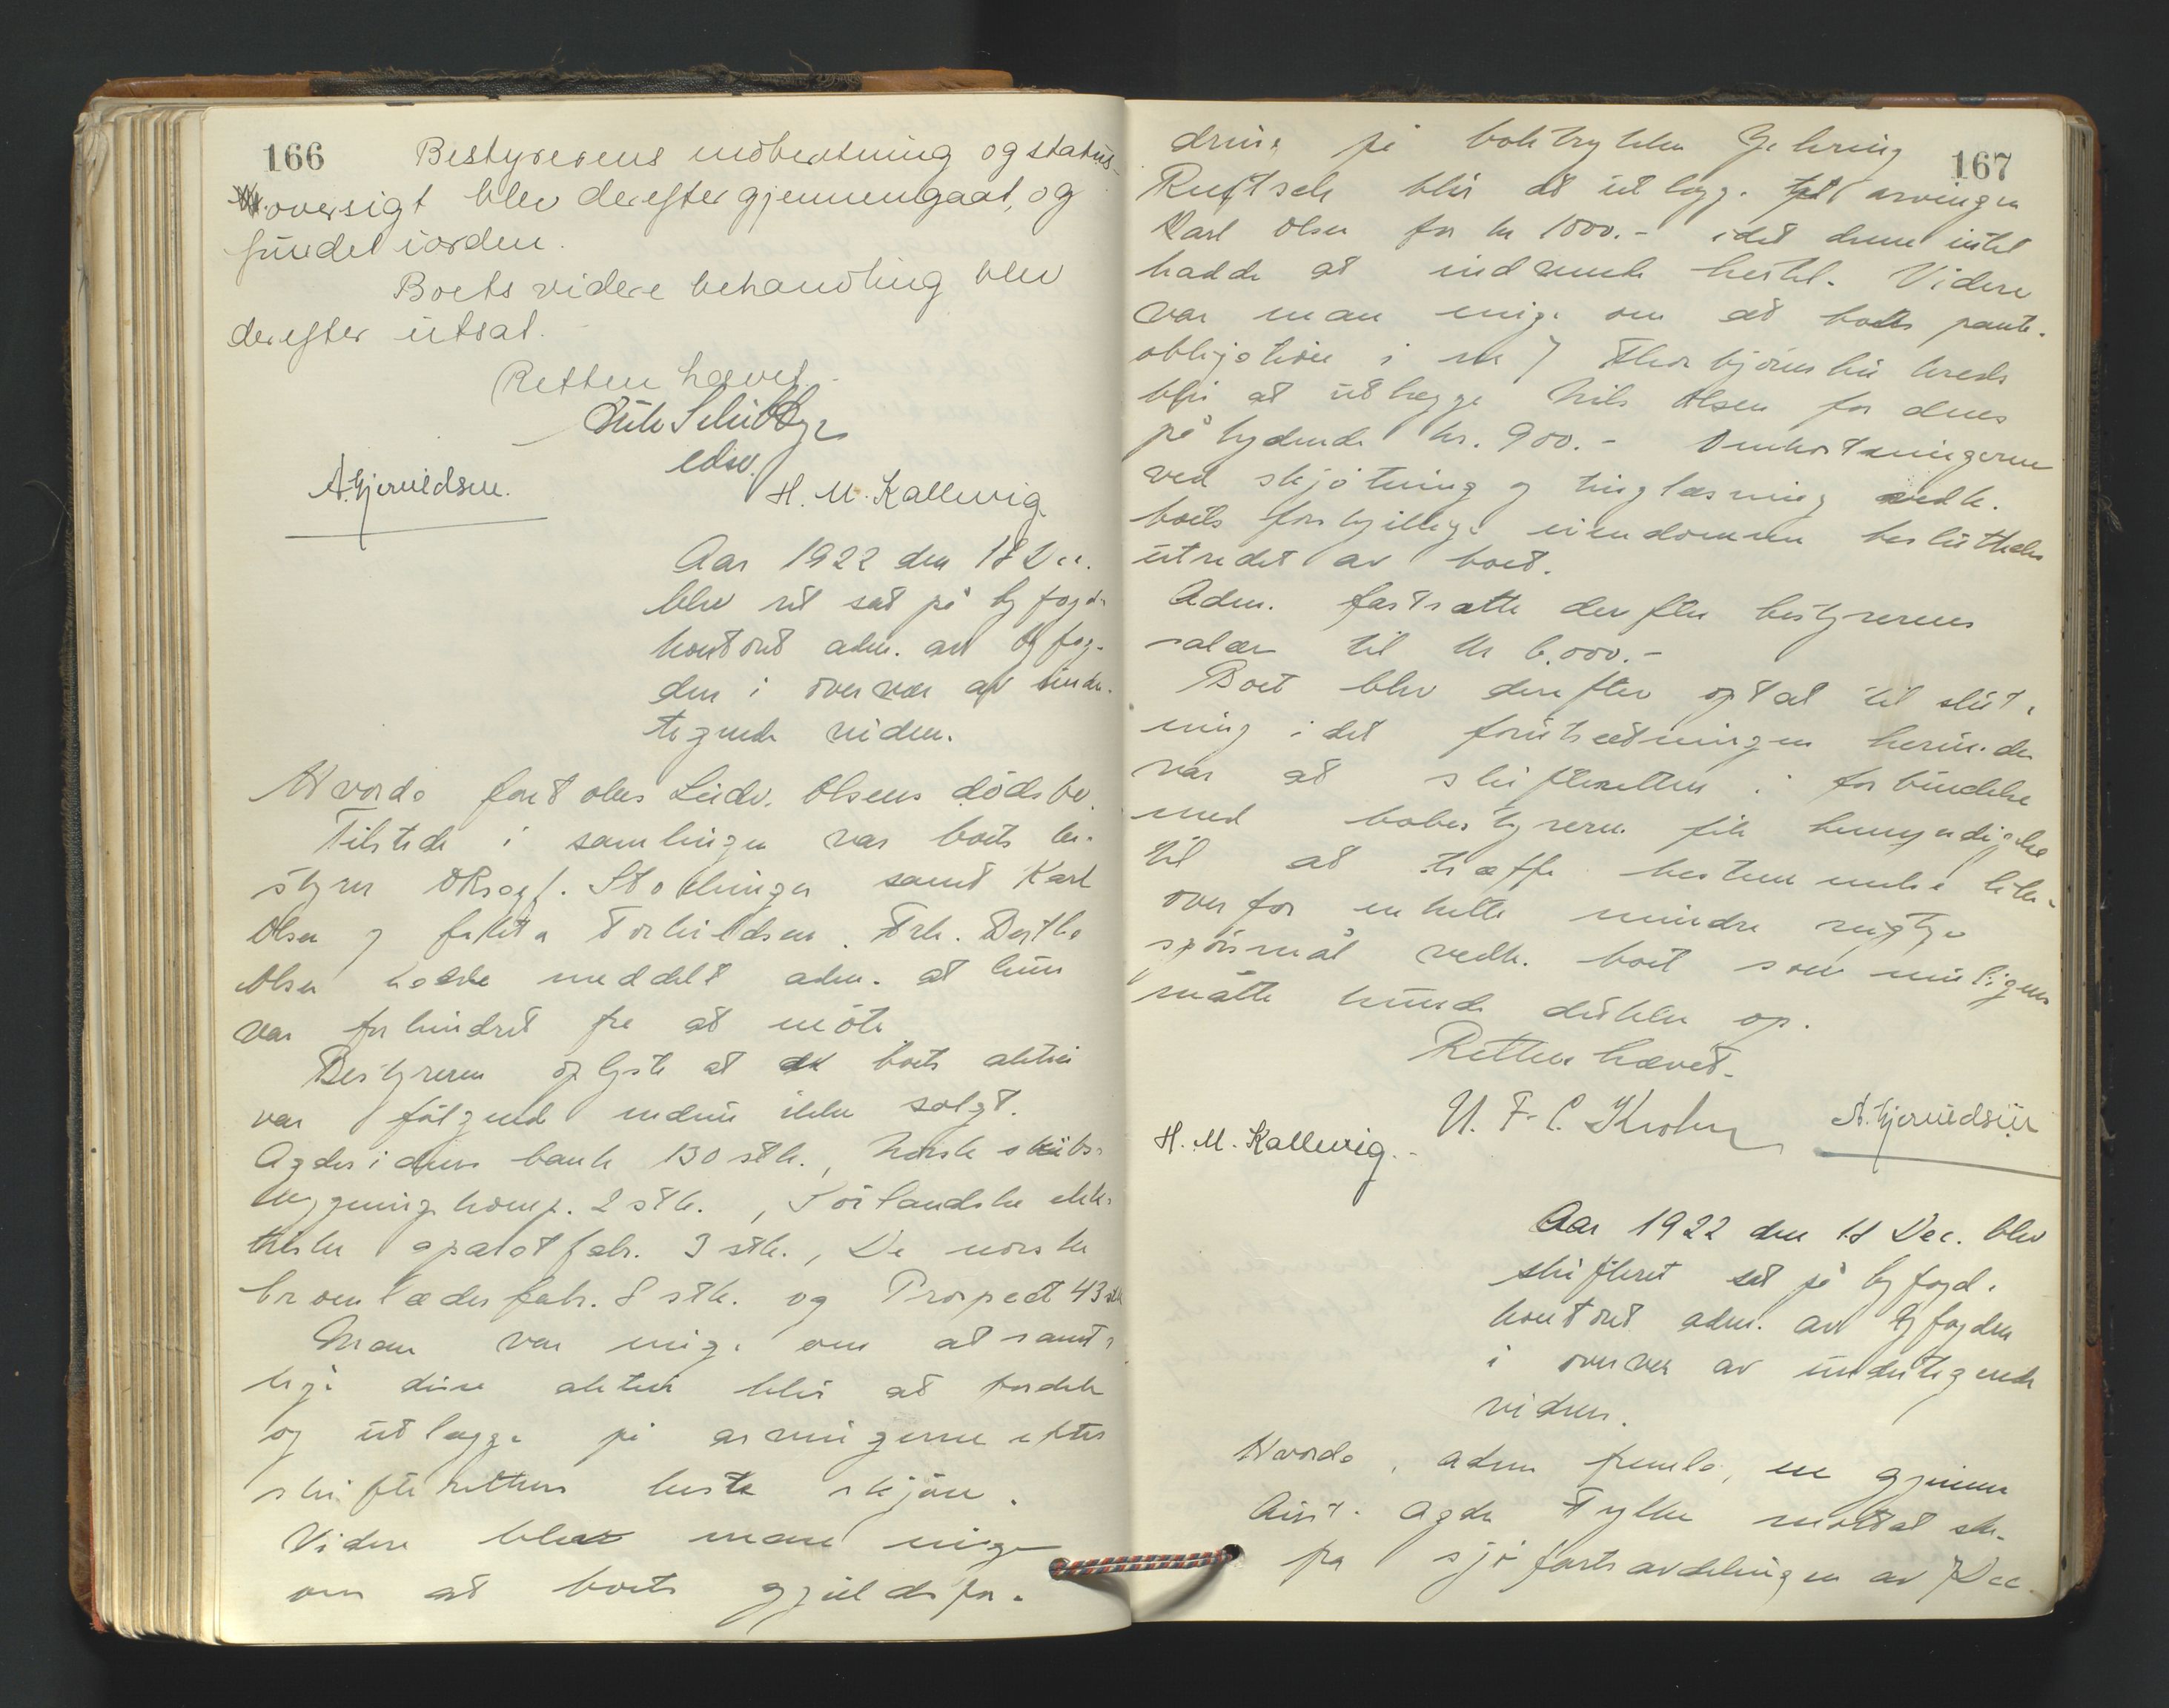 166 Bestyrerens indberetning og status-
oversigt blev derefter gjennemgaat, og
fundet iorden.
Boets videre behandling blev
derefter utsat.
Retten hævet.
edsv.
A. Gjeruldsen. H. M. Kallevig
Aar 1922 den 18 Dec.
blev ret sat på byfogd-
kontoret adm. av byfog-
den i overvær av under-
tegnede vidner.
Hvorda foretokes Ludv. Olsens dödsbo.
Tilstede i samlingen var boets be-
styrer Orsagf. Stochinger samt Karl
Olsen og Torkildsen. Frk. Dorthe
Olsen hadde meddelt adm. at hun
var forhindret fra at möte
Bestyreren oplyste at av boets aktier
var fölgende endnu ikke solgt.
Agdesidens bank 130 stk., Norsk skibs-
bygningskomp. 2 stk., Sörlandske elek-
triske aparatfabr. 3 stk., De norske
kromlæderfabr. 8 stk. og Prospect 43 stk
Man var enige om at samt-
lige disse aktier blir at fordele
og utlægge på arvingerne efter
skifterettens beste skjön.
Videre blev man enige
om at boets gjeldsfor-
167
dring på boktrykker Gehring
blir at utlægge arvingen
Karl Olsen for kr 1000.- idet denne intet
hadde at indvende hertil. Videre
var man enige om at boets pante-
obligation i Thorbjörnsbu kreds
blir at utlægge Nils Olsen for dens
pålydende kr. 900.- Omkostningerne
ved skjötning og tinglæsning vedk.
boets forskjellige eiendommer besluttedes
utredet av boet.
Adm. fastsatte derefter bestyrerens
salær til kr 6.000.-
Boet blev derefter optat til slut-
ning idet forutsætningen herunder
var at skifteretten i forbindelse
med bobestyreren fik bemyndigelse
til at træffe bestemmelse like-
overfor enkelte mindre vigtige
spörsmål vedk. boet som muligens
måtte kunde dukke op.
Retten hævet.
H. M. Kallevig. U. F. C. Krohn A. Gjeruldsen
Aar 1922 den 18 Dec. blev
skifteret sat på byfogd-
kontoret adm. av byfogden
i overvær av undertegnede
vidner.
Hvorda, adm fremla, en gjennem
Aust-Agder Fylke mottat skr.
fra sjöfartsavdelingen av 7 Dec.